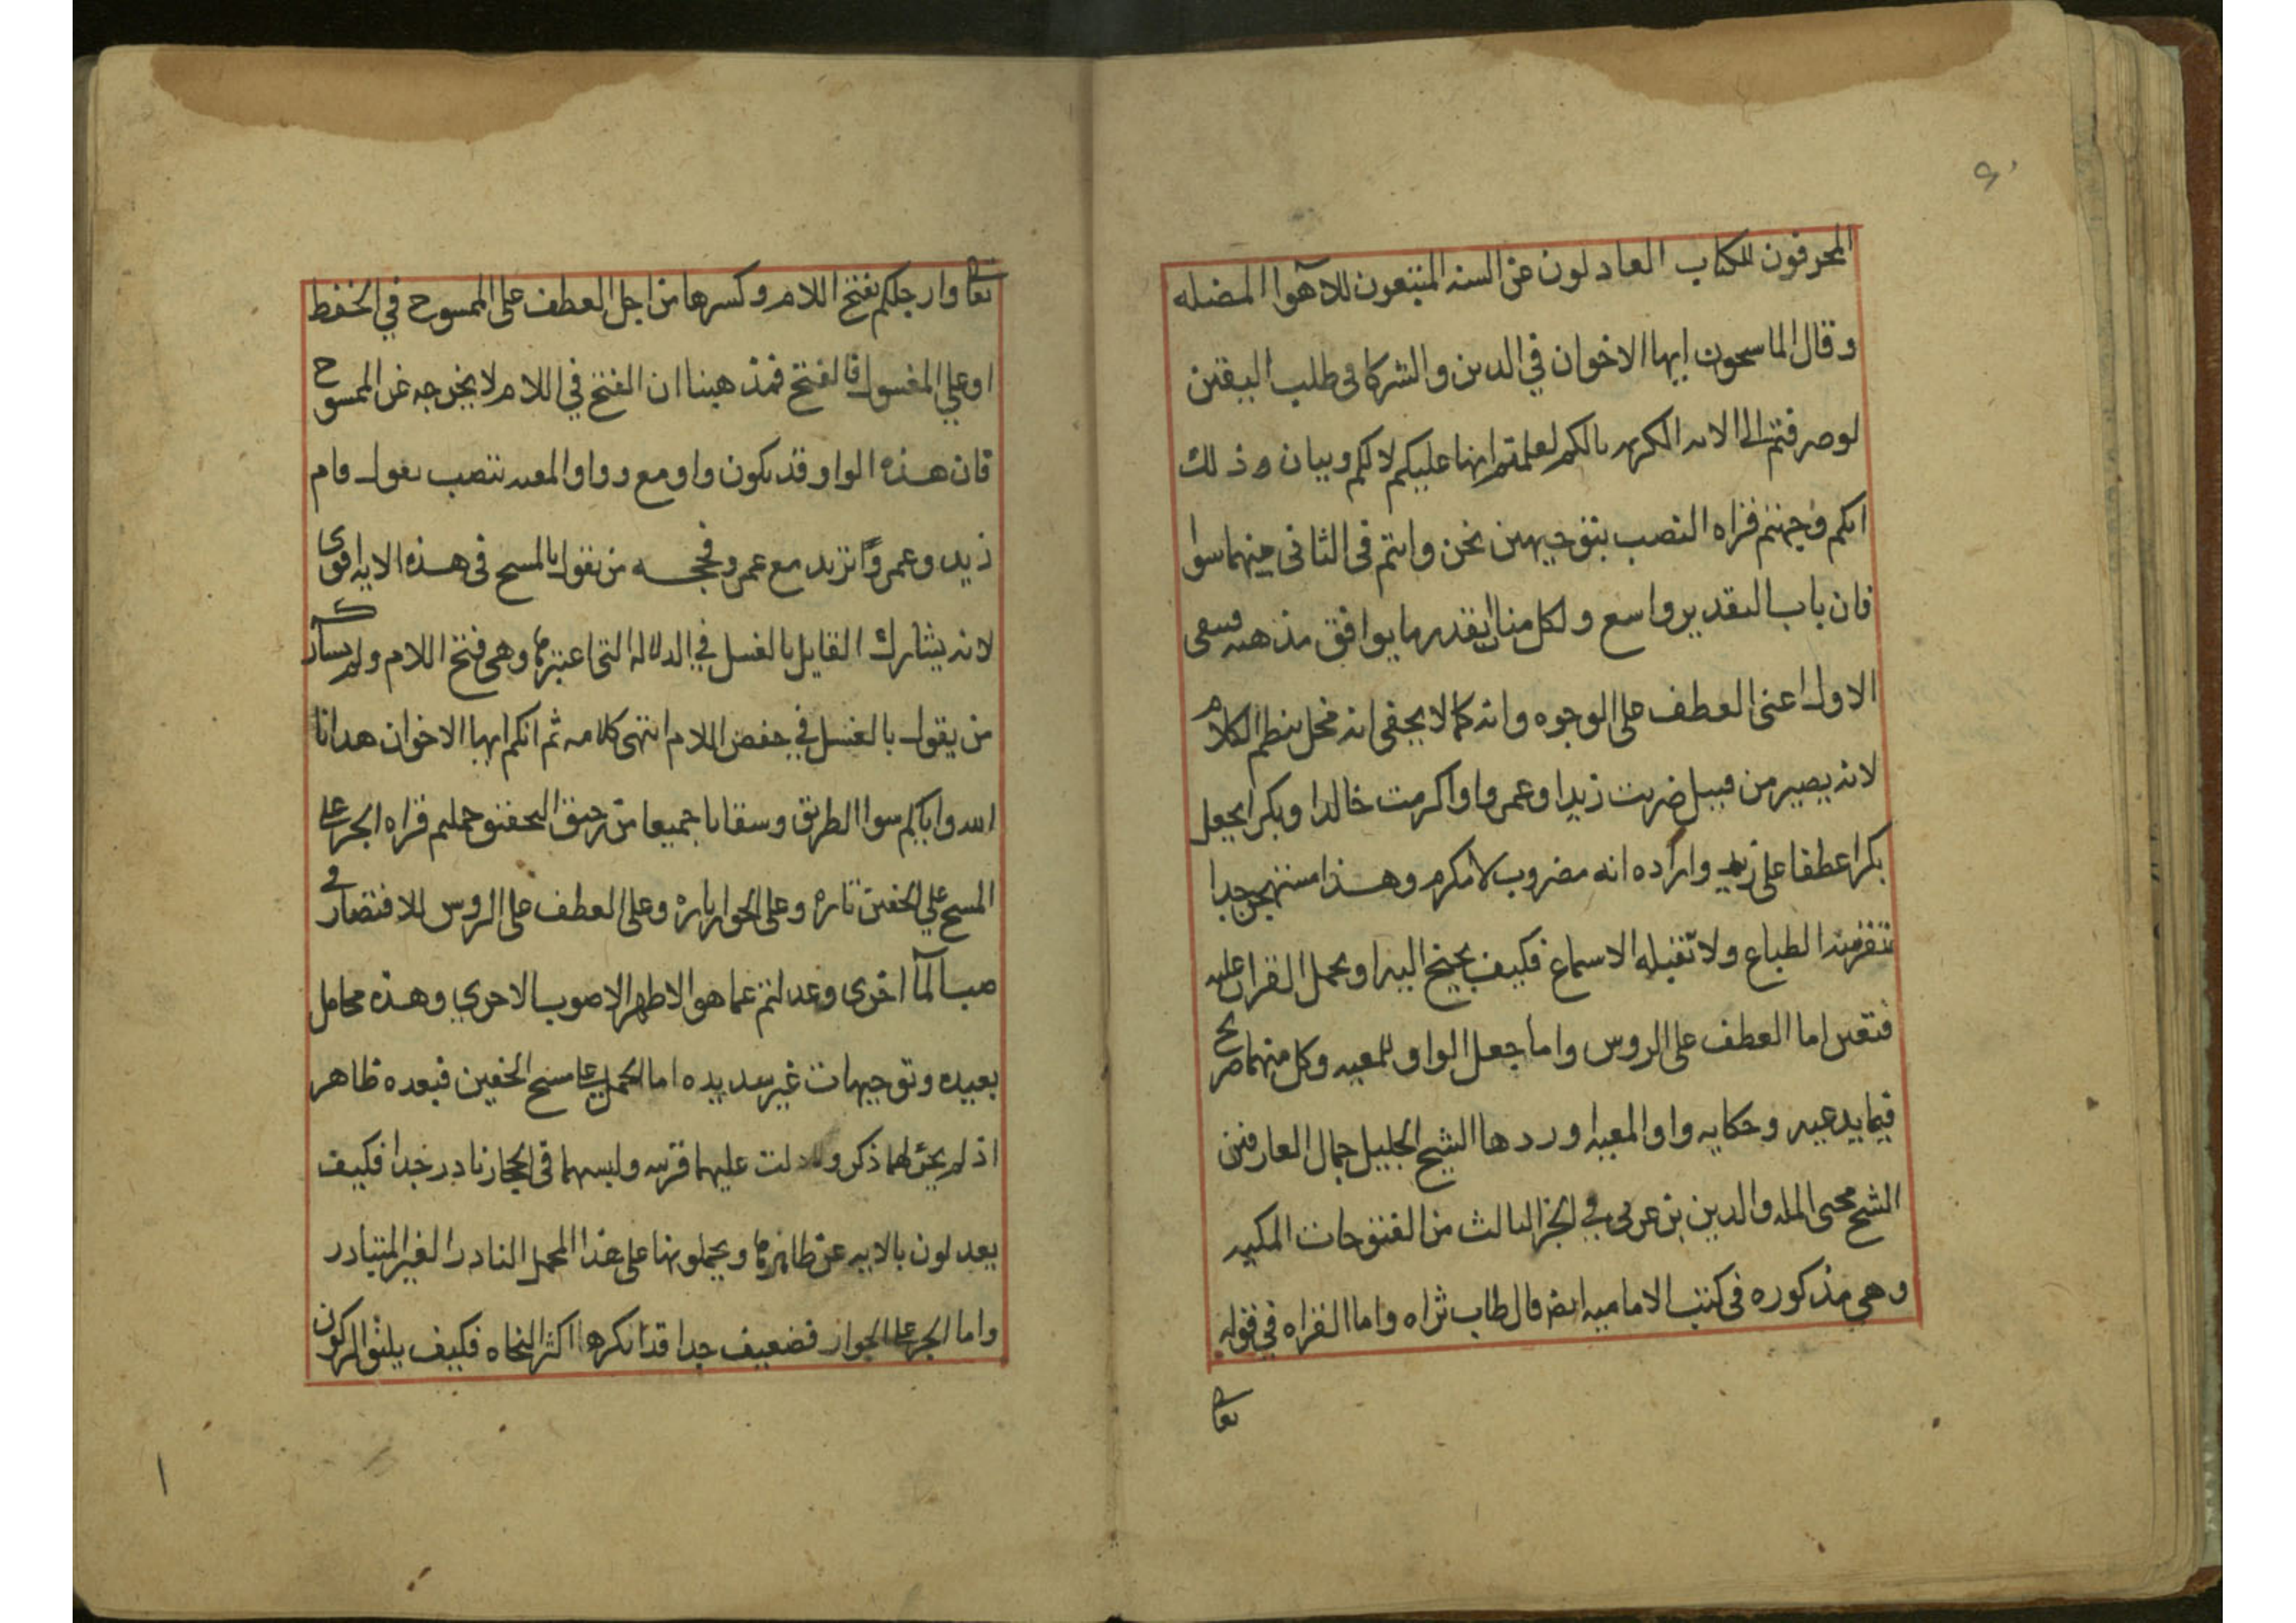 المحرفون للكتاب العادلون عن السنه المتبعون للاهوآ المضله
وقال الماسحون ايها الاخوان في الدين والشركا في طلب اليقين
لو صرفتم الى الايه الكريمه بالكم لعلمتم انها عليكم لا لكم وبيان ذلك
انكم وجهتم قراه النصب بتوجيهين نحن وانتم في الثاني منهما سوا
فان باب التقدير واسع ولكل منا ان يقدر ما يوافق مذهبه فبقى
الاول اعنى العطف على الوجوه وانه كما لا يخفى انه مخل بنظم الكلام
لانه يصير من قبيل ضربت زيدا وعمروا واكرمت خالدا وبكرا بجعل
بكرا عطفا على زيد واراده انه مضروب لا مكرم وهذا مستهجن جدا
تنفر منه الطباع ولا تقبله الاسماع فكيف يجنح اليه او يحمل القران عليه
فتعين اما العطف على الروس واما جعل الواو للمعيه وكل منهما صريح
فيما يدعيه وحكايه واو المعيه وردها الشيخ الجليل جمال العارفين
الشيخ محيى المله والدين بن عربي في الجز الثالث من الفتوحات المكيه
وهي مذكوره في كتب الاماميه ايضا قال طاب ثراه واما القراه في قوله
تعالى
تعالى وارجلكم بفتح اللام وكسرها من اجل العطف على الممسوح في الخفظ
او على المغسول فالفتح فمذهبنا ان الفتح في اللام لا يخرجه عن الممسوح
فان هذه الواو قد يكون واو مع وواو المعيه تنصب تقول قام
زيد وعمروًا تريد مع عمرو فحجه من يقول بالمسح في هذه الايه اقوى
لانه يشارك القايل بالغسل في الدلاله التى اعتبرها وهي فتح اللام ولم يشاركه
من يقول بالغسل في خفض اللام انتهى كلامه ثم انكم ايها الاخوان هدانا
الله واياكم سوا الطريق وسقانا جميعا من رحيق التحقيق حملتم قراه الجر على
المسح على الخفين تاره وعلى الجوار تاره وعلى العطف على الروس للاقتصار في
صب المآ اخرى وعدلتم عما هو الاظهر الاصوب الاحرى وهذه محامل
بعيده وتوجيهات غير سديده اما الحمل على مسح الخفين فبعده ظاهر
اذ لم يجر لهما ذكر ولا دلت عليهما قرينه ولبسهما في الحجاز نادر جدا فكيف
يعدلون بالايه عن ظاهرها ويحملونها على هذا المحمل النادر الغير المتبادر
واما الجر على الجوار فضعيف جدا قد انكرها اكثر النحاه فكيف يليق الركون